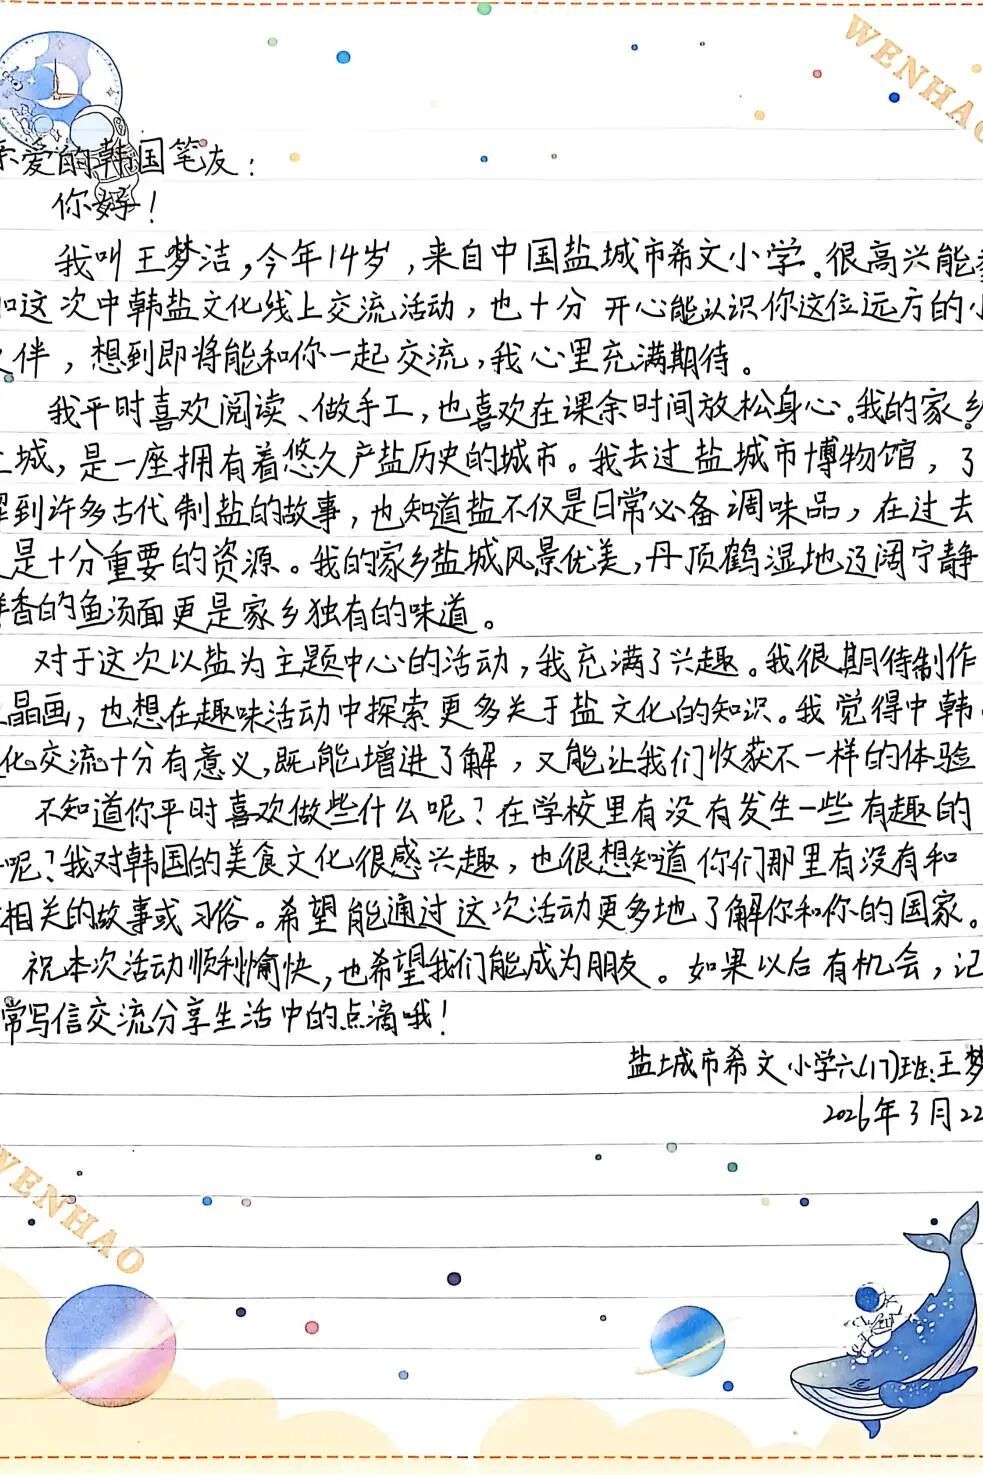 WENHAO
亲爱的韩国笔友：
你好！
我叫王梦洁，今年14岁，来自中国盐城市希文小学。很高兴能参
加这次中韩盐文化线上交流活动，也十分开心能认识你这位远方的小
伙伴，想到即将能和你一起交流，我心里充满期待。
我平时喜欢阅读、做手工，也喜欢在课余时间放松身心。我的家乡
城，是一座拥有着悠久产盐历史的城市。我去过盐城市博物馆，了
解到许多古代制盐的故事，也知道盐不仅是日常必备调味品，在过去
是十分重要的资源。我的家乡盐城风景优美，丹顶鹤湿地辽阔宁静
香的鱼汤面更是家乡独有的味道。
对于这次以盐为主题中心的活动，我充满了兴趣。我很期待制作
晶画，也想在趣味活动中探索更多关于盐文化的知识。我觉得中韩
化交流十分有意义，既能增进了解，又能让我们收获不一样的体验
不知道你平时喜欢做些什么呢？在学校里有没有发生一些有趣的
呢？我对韩国的美食文化很感兴趣，也很想知道你们那里有没有和
相关的故事或习俗。希望能通过这次活动更多地了解你和你的国家。
祝本次活动顺利愉快，也希望我们能成为朋友。如果以后有机会，记
常写信交流分享生活中的点滴哦！
盐城市希文小学六(17)班：王梦
2026年3月22
WENHAO